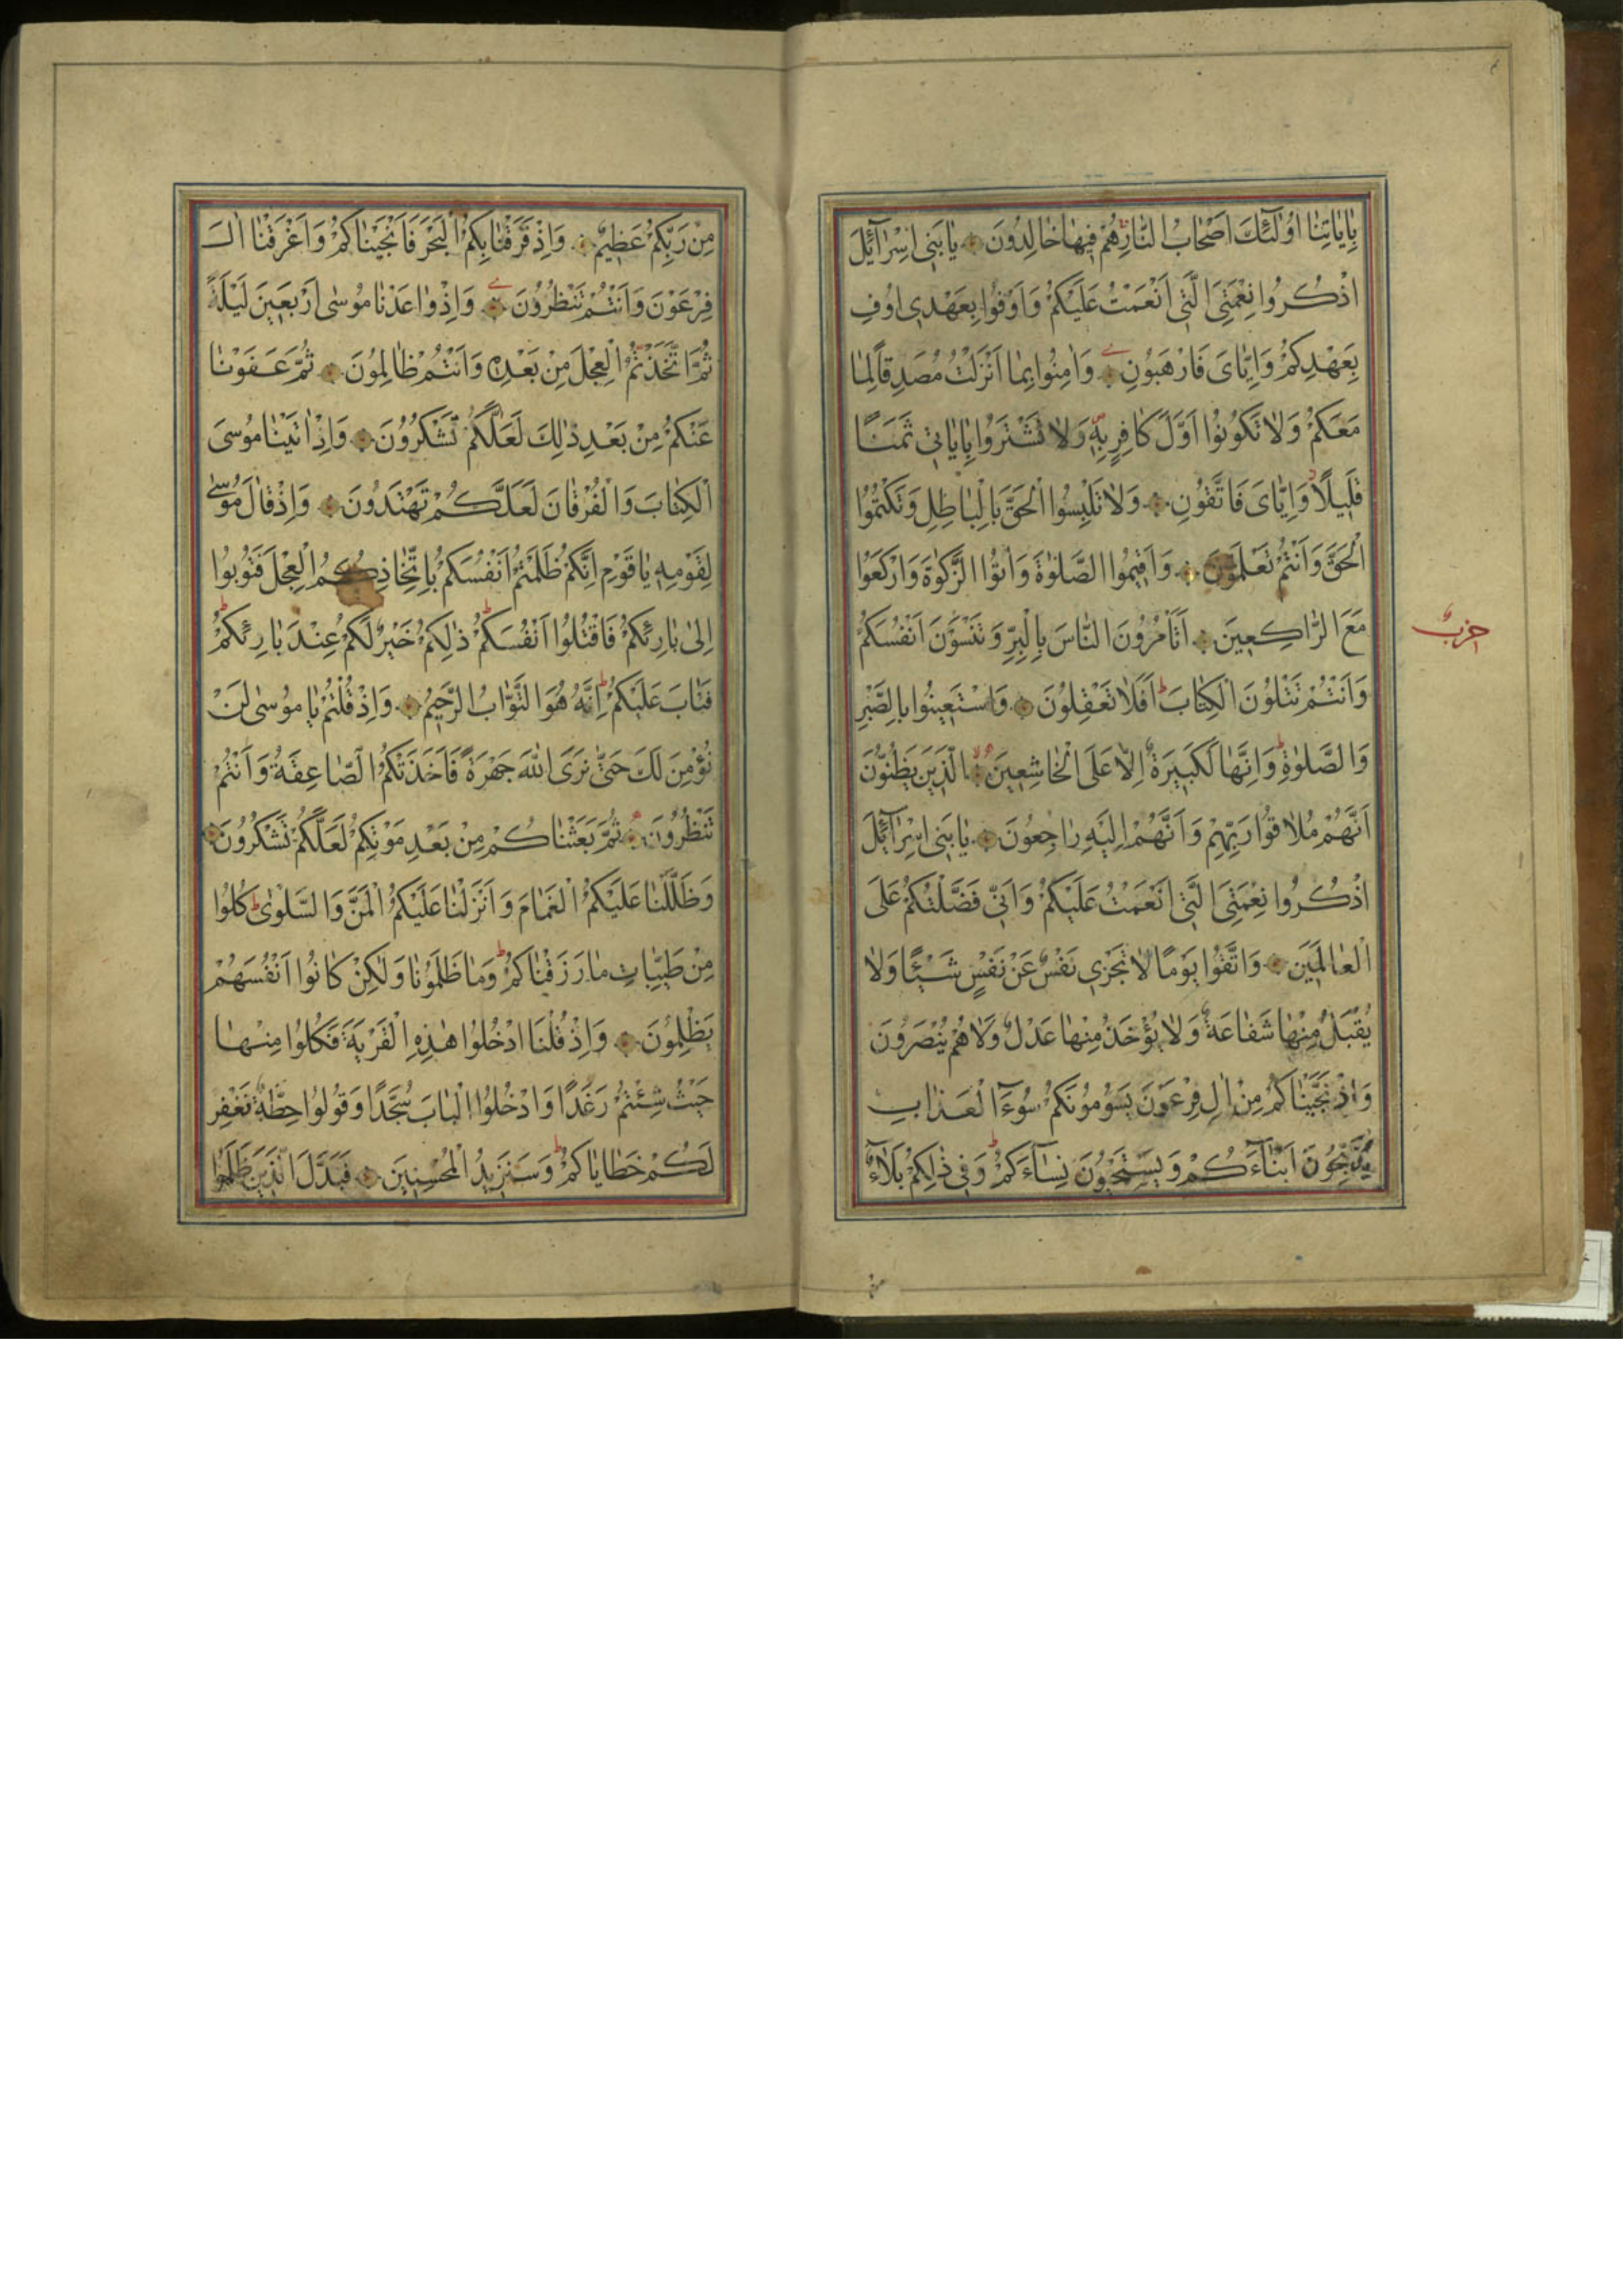 بِاٰيَاتِنَا اُولٰٓئِكَ اَصْحَابُ النَّارِ هُمْ فِيهَا خَالِدُونَ يَا بَنِى اِسْرَآئِلَ
اذْكُرُوا نِعْمَتِىَ الَّتِى اَنْعَمْتُ عَلَيْكُمْ وَاَوْفُوا بِعَهْدِى اُوفِ
بِعَهْدِكُمْ وَاِيَّاىَ فَارْهَبُونِ وَاٰمِنُوا بِمَا اَنْزَلْتُ مُصَدِقًا لِمَا
مَعَكُمْ وَلَا تَكُونُوا اَوَّلَ كَافِرٍ بِهِ وَلَا تَشْتَرُوا بِاٰيَاتِى ثَمَنًا
قَلِيلًا وَاِيَّاىَ فَاتَّقُونِ وَلَا تَلْبِسُوا الْحَقَّ بِالْبَاطِلِ وَتَكْتُمُوا
الْحَقَّ وَاَنْتُمْ تَعْلَمُونَ وَاَقِيمُوا الصَّلٰوةَ وَاٰتُوا الزَّكٰوةَ وَارْكَعُوا
مَعَ الرَّاكِعِينَ اَتَاْمُرُونَ النَّاسَ بِالْبِرِّ وَتَنْسَوْنَ اَنْفُسَكُمْ
حزب
وَاَنْتُمْ تَتْلُونَ الْكِتَابَ اَفَلَا تَعْقِلُونَ وَاسْتَعِينُوا بِالصَّبْرِ
وَالصَّلٰوةِ وَاِنَّهَا لَكَبِيرَةٌ اِلَّا عَلَى الْخَاشِعِينَ الَّذِينَ يَظُنُّونَ
اَنَّهُمْ مُلَاقُوا رَبِّهِمْ وَاَنَّهُمْ اِلَيْهِ رَاجِعُونَ يَا بَنِى اِسْرَآئِلَ
اذْكُرُوا نِعْمَتِىَ الَّتِى اَنْعَمْتُ عَلَيْكُمْ وَاَنِّى فَضَّلْتُكُمْ عَلَى
الْعَالَمِينَ وَاتَّقُوا يَوْمًا لَا تَجْزِى نَفْسٌ عَنْ نَفْسٍ شَيْئًا وَلَا
يُقْبَلُ مِنْهَا شَفَاعَةٌ وَلَا يُؤْخَذُ مِنْهَا عَدْلٌ وَلَا هُمْ يُنْصَرُونَ
وَاِذْ نَجَّيْنَاكُمْ مِنْ اٰلِ فِرْعَوْنَ يَسُومُونَكُمْ سُوٓءَ الْعَذَابِ
يُذَبِّحُونَ اَبْنَآءَكُمْ وَيَسْتَحْيُونَ نِسَآءَكُمْ وَفِى ذٰلِكُمْ بَلَآءٌ
مِنْ رَبِّكُمْ عَظِيمٌ وَاِذْ فَرَقْنَا بِكُمُ الْبَحْرَ فَاَنْجَيْنَاكُمْ وَاَغْرَقْنَا اٰلَ
فِرْعَوْنَ وَاَنْتُمْ تَنْظُرُونَ وَاِذْ وٰاعَدْنَا مُوسٰى اَرْبَعِينَ لَيْلَةً
ثُمَّ اتَّخَذْتُمُ الْعِجْلَ مِنْ بَعْدِهِ وَاَنْتُمْ ظَالِمُونَ ثُمَّ عَفَوْنَا
عَنْكُمْ مِنْ بَعْدِ ذٰلِكَ لَعَلَّكُمْ تَشْكُرُونَ وَاِذْ اٰتَيْنَا مُوسَى
الْكِتَابَ وَالْفُرْقَانَ لَعَلَّكُمْ تَهْتَدُونَ وَاِذْ قَالَ مُوسٰى
لِقَوْمِهِ يَا قَوْمِ اِنَّكُمْ ظَلَمْتُمْ اَنْفُسَكُمْ بِاتِّخَاذِكُمُ الْعِجْلَ فَتُوبُوا
اِلٰى بَارِئِكُمْ فَاقْتُلُوا اَنْفُسَكُمْ ذٰلِكُمْ خَيْرٌ لَكُمْ عِنْدَ بَارِئِكُمْ
فَتَابَ عَلَيْكُمْ اِنَّهُ هُوَ التَّوَّابُ الرَّحِيمُ وَاِذْ قُلْتُمْ يَا مُوسٰى لَنْ
نُؤْمِنَ لَكَ حَتَّى نَرَى اللّٰهَ جَهْرَةً فَاَخَذَتْكُمُ الصَّاعِقَةُ وَاَنْتُمْ
تَنْظُرُونَ ثُمَّ بَعَثْنَاكُمْ مِنْ بَعْدِ مَوْتِكُمْ لَعَلَّكُمْ تَشْكُرُونَ
وَظَلَّلْنَا عَلَيْكُمُ الْغَمَامَ وَاَنْزَلْنَا عَلَيْكُمُ الْمَنَّ وَالسَّلْوٰى كُلُوا
مِنْ طَيِّبَاتِ مَا رَزَقْنَاكُمْ وَمَا ظَلَمُونَا وَلٰكِنْ كَانُوا اَنْفُسَهُمْ
يَظْلِمُونَ وَاِذْ قُلْنَا ادْخُلُوا هٰذِهِ الْقَرْيَةَ فَكُلُوا مِنْهَا
حَيْثُ شِئْتُمْ رَغَدًا وَادْخُلُوا الْبَابَ سُجَّدًا وَقُولُوا حِطَّةٌ نَغْفِرْ
لَكُمْ خَطَايَاكُمْ وَسَنَزِيدُ الْمُحْسِنِينَ فَبَدَّلَ الَّذِينَ ظَلَمُوا